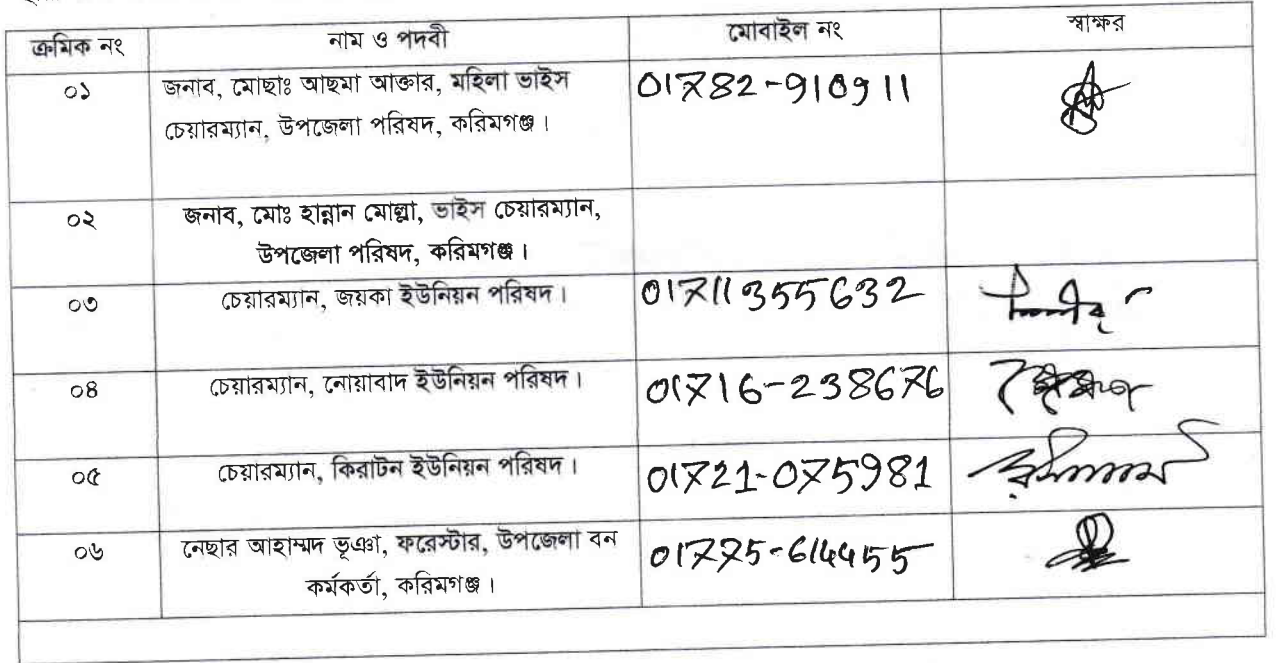 ক্রমিক নং নাম ও পদবী মোবাইল নং স্বাক্ষর
০১ জনাব, মোছাঃ আছমা আক্তার, মহিলা ভাইস 01782-910911
চেয়ারম্যান, উপজেলা পরিষদ, করিমগঞ্জ।
০২ জনাব, মোঃ হান্নান মোল্লা, ভাইস চেয়ারম্যান,
উপজেলা পরিষদ, করিমগঞ্জ।
০৩ চেয়ারম্যান, জয়কা ইউনিয়ন পরিষদ। 01711355632
০৪ চেয়ারম্যান, নোয়াবাদ ইউনিয়ন পরিষদ। 01716-238676
০৫ চেয়ারম্যান, কিরাটন ইউনিয়ন পরিষদ। 01721-075981
০৬ নেছার আহাম্মদ ভূঞা, ফরেস্টার, উপজেলা বন 01775-614455
কর্মকর্তা, করিমগঞ্জ।